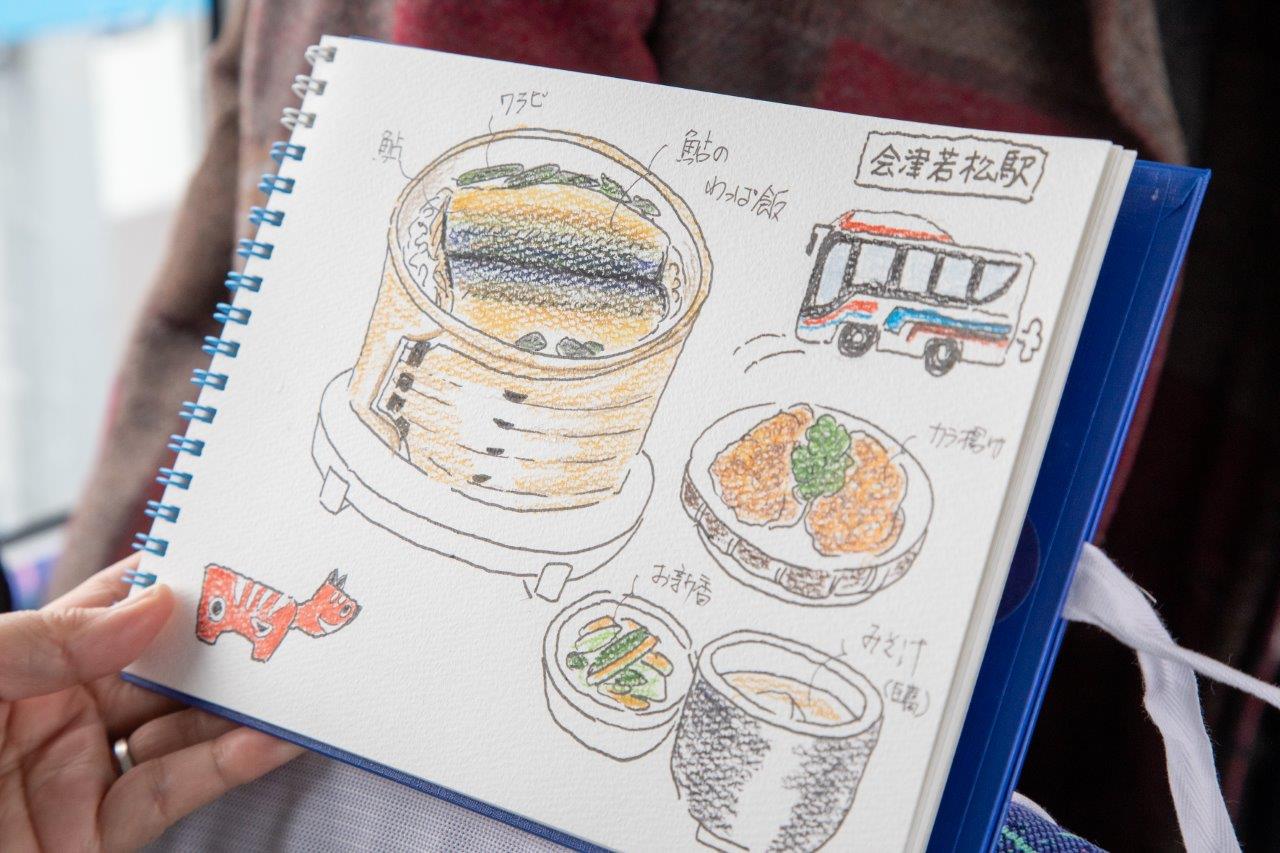 ワラビ
鮎
鮎の
わっぱ飯
会津若松駅
カラ揚げ
お新香
みそ汁
(豆腐)